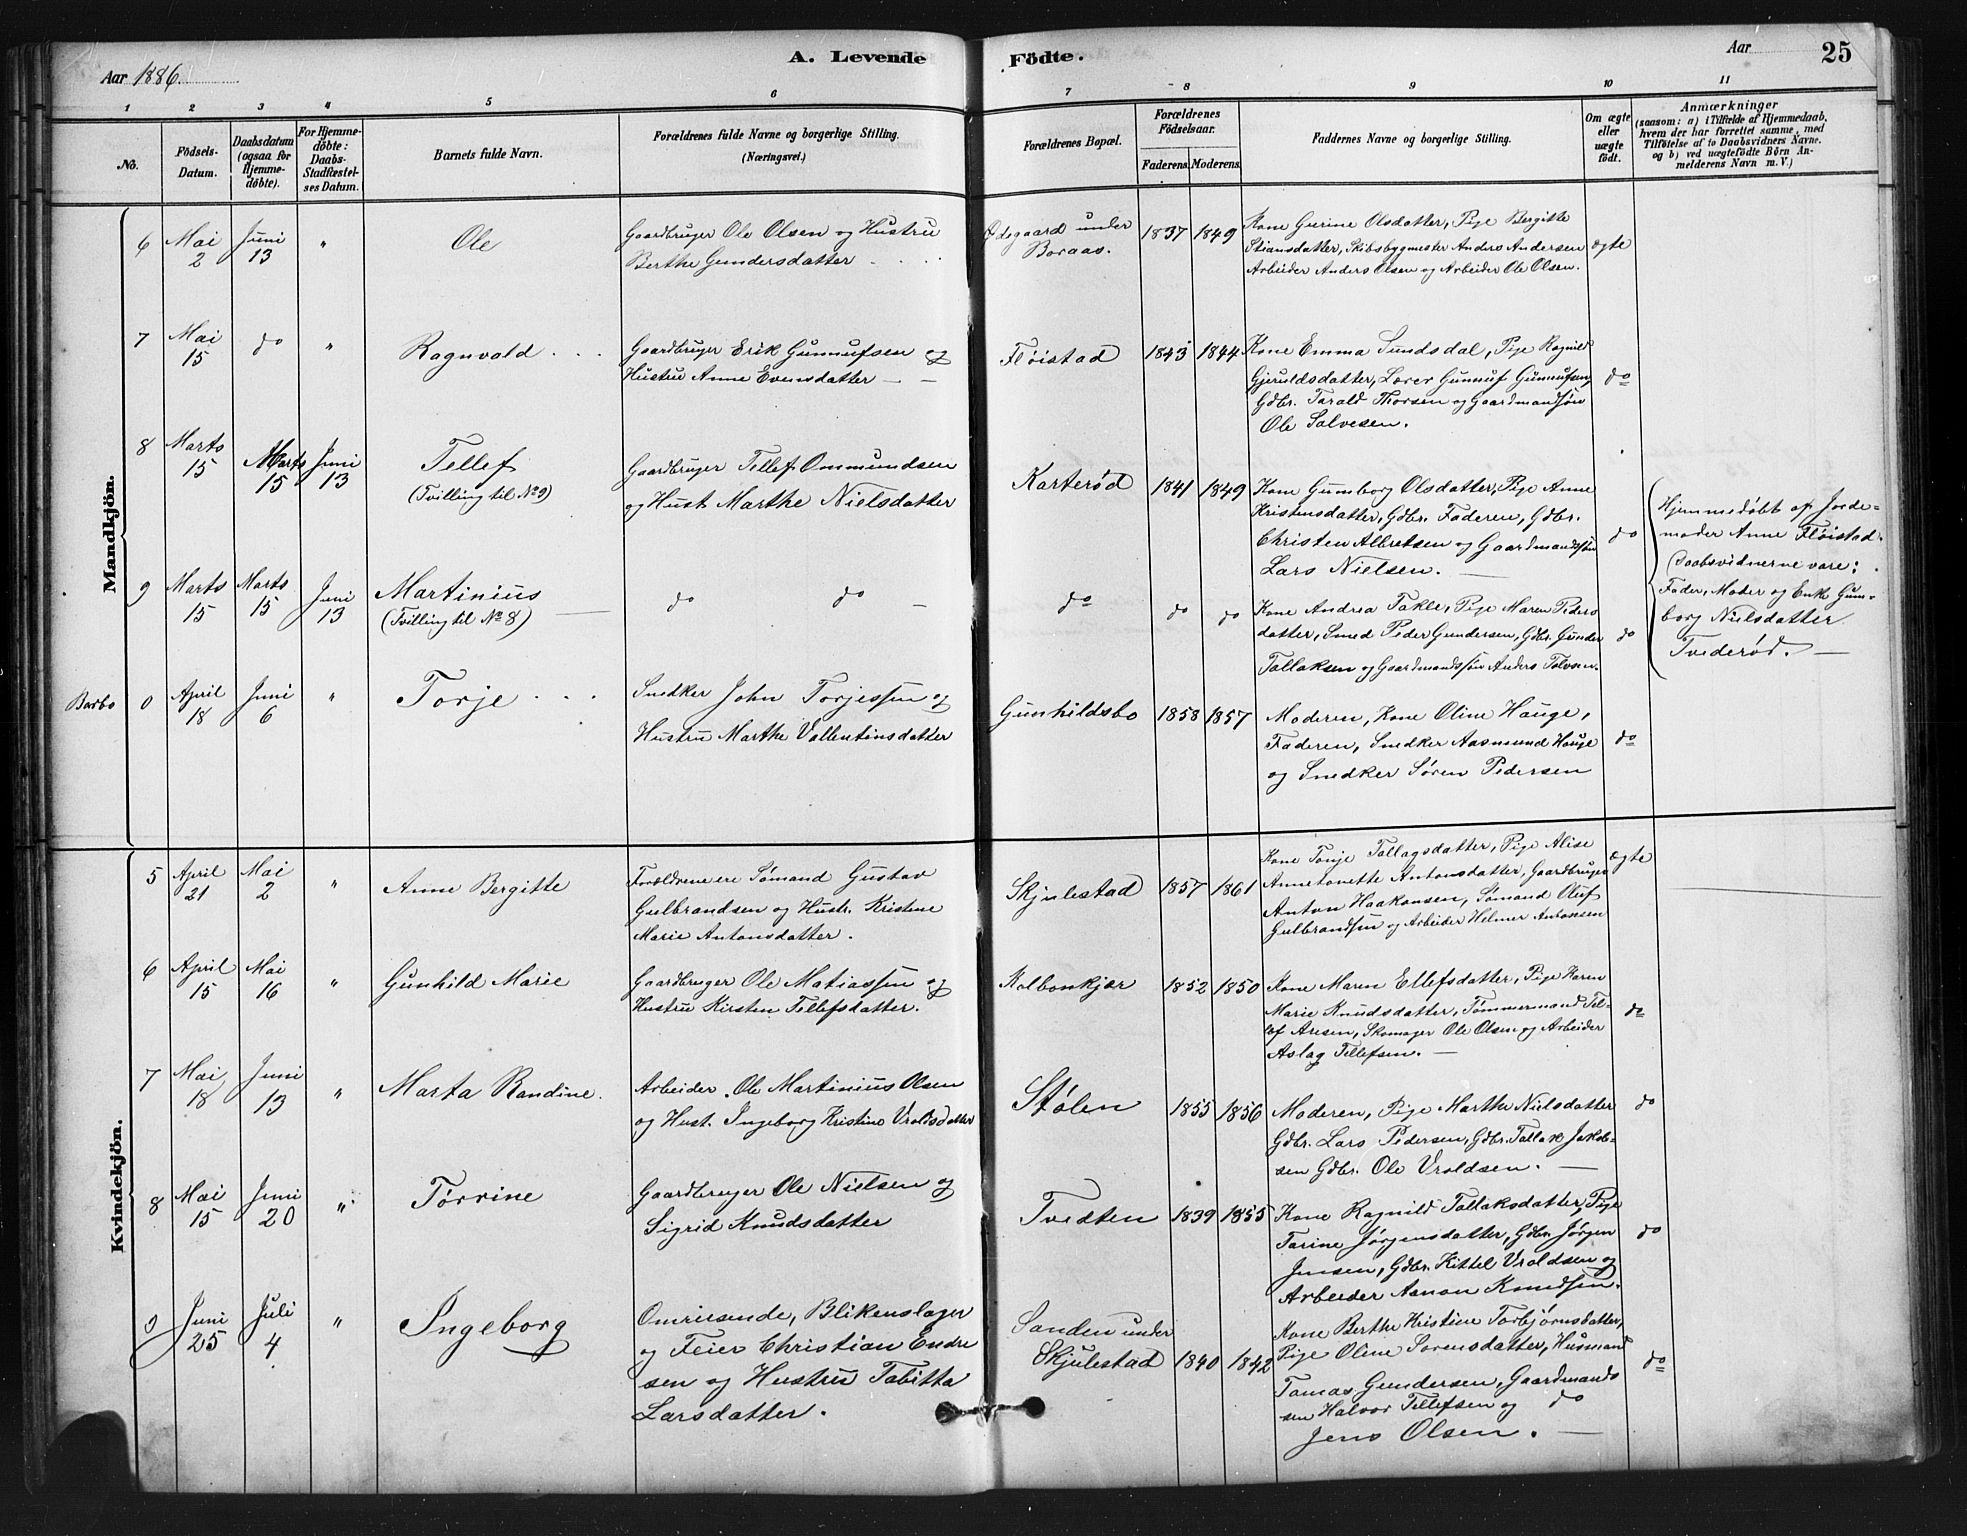 Aar 1886.
A. Levende
Födte.
Aar
25
1 2 3 4 5 6 7 8 9 10 11
No.
Födsels-Datum.
Daabsdatum (ogsaa for Hjemmedöbte).
For Hjemmedöbte: Daabs-Stadfæstelses Datum.
Barnets fulde Navn.
Forældrenes fulde Navne og borgerlige Stilling.
(Næringsvei.)
Forældrenes Bopæl.
Forældrenes Födselsaar.
Faderens. Moderens.
Faddernes Navne og borgerlige Stilling.
Om ægte eller uægte födt.
Anmærkninger
(saasom: a) i Tilfælde af Hjemmedaab, hvem der har forrettet samme, med Tilföielse af to Daabsvidners Navne. og b) ved uægtefödte Börn Anmelderens Navn m. V.)
Mandkjön.
6 Mai 2 Juni 13 " Ole
Gaardbruger Ole Olsen og Hustru
Berthe Gundersdatter
Ødegaard under
Boraas.
1837 1849
Kone Gurine Olsdatter, Pige Bergitte
Stiansdatter, Skibsbygmester Anders Andersen
Arbeider Anders Olsen og Arbeider Ole Olsen.
ægte
7 Mai 15 do " Ragnvald
Gaardbruger Erik Gunnufsen og
Hustru Anne Evensdatter
Fløistad
1843 1844
Kone Emma Sundsdal, Pige Ragnild
Gjeruldsdatter, Lærer Gunnuf Gunnufsen,
Gdbr. Tarald Thorsen og Gaardmandssøn
Ole Salvesen.
do
8 Marts 15 Marts 15 Juni 13 Tellef
(Tvilling til No 9)
Gaardbruger Tellef Ommundsen
og Hust. Marthe Nielsdatter
Karterød
1841 1849
Kone Gumborg Olsdatter, Pige Anne
Kristensdatter, Gdbr. Faderen, Gdbr.
Christen Albretsen og Gaardmandssøn
Lars Nielsen.
do
Hjemmedøbt af Jorde-
moder Anne Fløistad.
Daabsvidnerne vare:
Fader, Moder og Enke Gum-
borg Nielsdatter
Tvederød.
9 Marts 15 Marts 15 Juni 13 Martinius
(Tvilling til No 8)
do do
do
do do
Kone Andrea Takle, Pige Maren Peders
datter, Smed Peder Gundersen, Gdbr. Gunder
Tallaksen og Gaardmandssøn Anders Tolvsen.
do
Barbo 0 April 18 Juni 6 " Torje
Snedker John Torjessen og
Hustru Marthe Vallentinsdatter
Gunhildsbo
1858 1857
Moderen, Kone Oline Hauge,
Faderen, Snedker Aasmund Hauge
og Snedker Søren Pedersen
do
Kvindekjön.
5 April 21 Mai 2 " Anne Bergitte
Forældrene ere Sømand Gustav
Gulbrandsen og Hustr. Kristine
Marie Antonsdatter.
Skjulestad
1857 1861
Kone Tonje Tallagsdatter, Pige Alise
Annetonette Antonsdatter, Gaardbruger
Anton Haakonsen, Sømand Oluf
Gulbrandsen og Arbeider Helmer Antonsen
ægte
6 April 15 Mai 16 " Gunhild Marie
Gaardbruger Ole Matiassen og
Hustru Kirsten Tellefsdatter.
Kolbonkjær
1852 1850
Kone Maren Ellefsdatter, Pige Karen
Marie Knudsdatter, Tømmermand Tel-
ef Aresen, Skomager Ole Olsen og Arbeider
Aslag Tellefsen.
do
7 Mai 18 Juni 13 " Marta Randine.
Arbeider Ole Martinius Olsen
og Hust. Ingeborg Kristine Vroldsdatter
Stølen
1855 1856
Moderen, Pige Marthe Nielsdatter
Gdbr. Lars Pedersen, Gdbr. Tallak Jakob-
sen Gdbr. Ole Vroldsen.
do
8 Mai 15 Juni 20 " Torrine
Gaardbruger Ole Nielsen og
Sigrid Knudsdatter
Tvedten
1839 1855
Kone Ragnild Tallaksdatter, Pige
Tarine Jørgensdatter, Gdbr. Jørgen
Jensen, Gdbr. Kittel Vroldsen og
Arbeider Aanon Knudsen.
do
9 Juni 25 Juli 4 " Ingeborg
Omreisende, Blikenslager
og Feier Christian Endre
sen og Hustru Tabitta
Larsdatter.
Sanden under
Skjulestad
1840 1842
Kone Berthe Kristine Torbjørnsdatter,
Pige Oline Sorensdatter, Husmand
Tomas Gundersen, Gaardmands
sen Halvor Tellefsen og do
Jens Olsen.
do